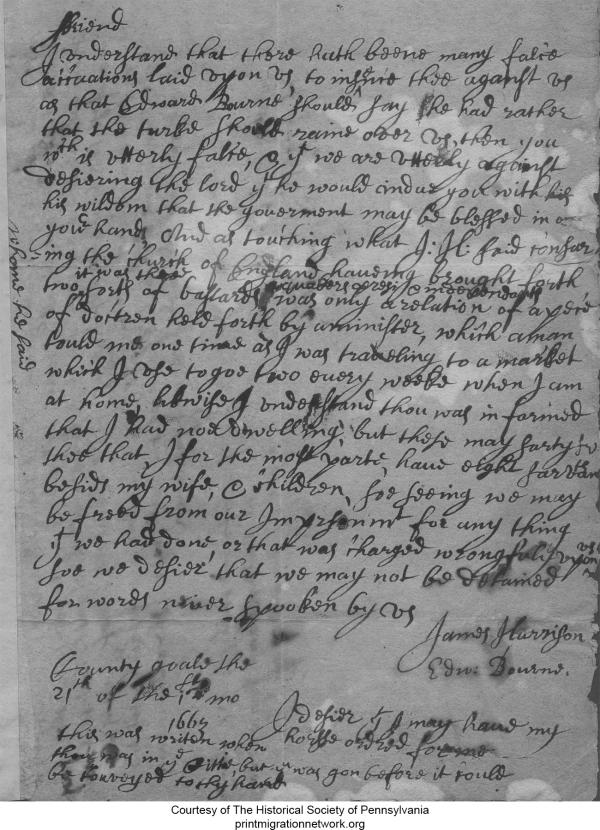 ffriend
I understand that there hath beene many false
accusations laid upon us, to insence thee against us
as that Edward Bourne should say he had rather
that the turke should raine over us, then you
wch is utterly false, & yt we are utterly against
desiering the lord yt he would indue you with his
his wisdom that the goverment may be blessed in
your hands And as touching what J: H: said consear
=ing the church of England haveing brought forth
it was these quakers presb: & independants
two sorts of bastards was only a relation of a pece
of doctren held forth by a minister, which a man
tould me one time as I was traveling to a market
which I use to goe two every weeke when I am
at home, likwise I understand thou was informed
that I had noe dwelling, but these may sartyfie
thee that I for the most parte, have eight sarvan
besids my wife, & children, soe seeing we may
be freed from our Imprsonmt for any thing
yt we had done, or that was charged wrongfuly upon us
soe we desier that we may not be detained
for words never spooken by us
James Harrison
Edw: Bourne.
County goale the
21th of the mo
1665
this was writen when
thou was in ye Citte, but it was gon before it could
be conveyed to thy hand
I desier yt I may have my
horse ordred for me
whome he said
Courtesy of The Historical Society of Pennsylvania
printmigrationnetwork.org